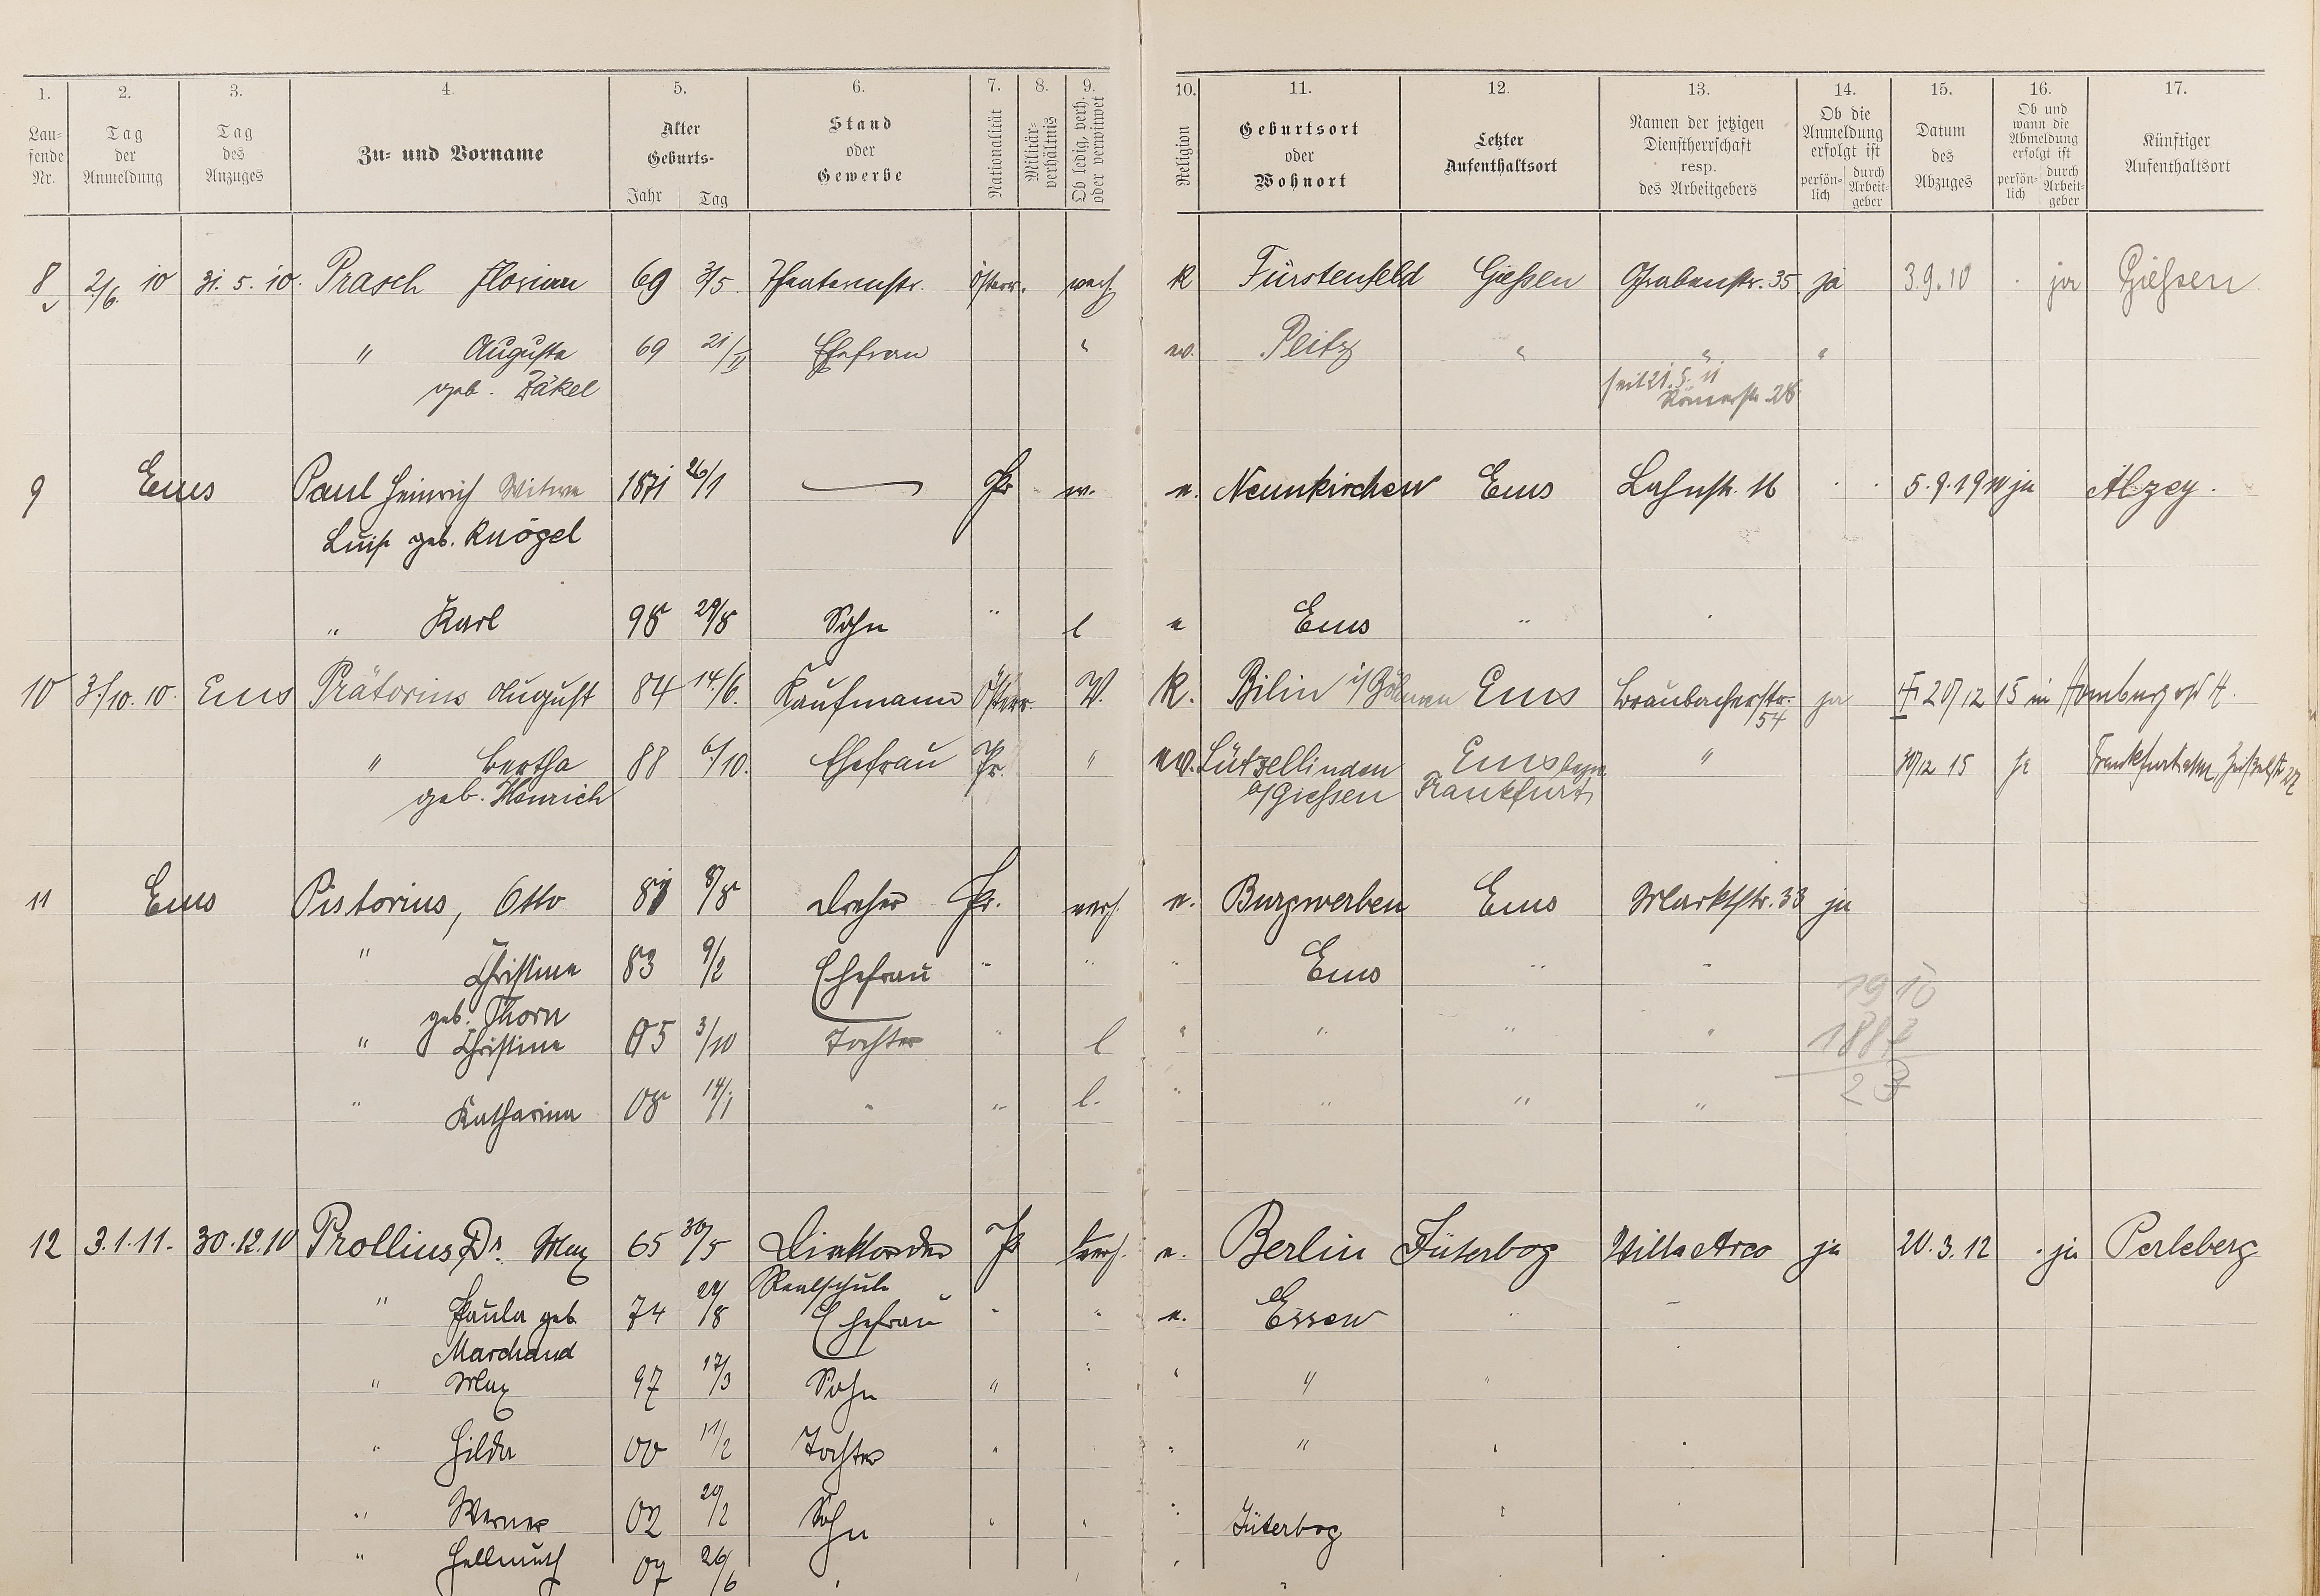 1. 2. 3. 4. 5. 6. 7. 8. 9. 10. 11. 12. 13. 14. 15. 16. 17.
Lau-
fende
Nr.
Tag
der
Anmeldung
Tag
des
Anzuges
Zu- und Vorname
Alter
Geburts-
Jahr Tag
Stand
oder
Gewerbe
Nationalität
Militär-
verhältnis
Ob ledig, verh.
oder verwitwet
Religion
Geburtsort
oder
Wohnort
Letzter
Aufenthaltsort
Namen der jetzigen
Dienstherrschaft
resp.
des Arbeitgebers
Ob die
Anmeldung
erfolgt ist
persön-
lich
durch
Arbeit-
geber
Datum
des
Abzuges
Ob und
wann die
Abmeldung
erfolgt ist
persön-
lich
durch
Arbeit-
geber
Künftiger
Aufenthaltsort
8 2/6. 10 31. 5. 10. Prasch Florian 69 3/5. Österr. verh. k Fürstenfeld Gießen Grabenstr. 35 ja 3.9.10 · ja Gießen
" Augusta 69 21/II Ehefrau " ev. Peitz " " "
geb. Jäkel seit 21. 5. 11
Römerstr. 28
9 Ems Paul Heinrich Witwe 1871 26/1 — Pr w. e. Neunkirchen Ems Lahnstr. 16 · · 5.9.1910 ja Alzey.
Luise geb. Knögel
" Karl 98 29/8 Sohn " l e Ems " "
10 3./10. 10. Ems Prätorius August 84 14./6. Kaufmann Österr. V. K. Bilin i/Böhmen Ems Braubacherstr. 54 ja 20/12 15 in Homburg v/d H.
" Bertha 88 6./10. Ehefrau Pr. " ev. Lützellinden Ems bezw. " 30/12 15 ja Frankfurt a/M
geb. Henrich b/Giessen Frankfurt
11 Ems Pistorius, Otto 81 8/8 Dreher Pr. verh. e. Burgwerben Ems Marktstr. 33 ja
" Christine 83 9/2 Ehefrau " " " Ems " "
geb. Thorn 1910
" Christine 05 3/10 Tochter " l " " " " 1887
" Katharina 08 14/1 " " l. " " " " 23
12 3.1.11. 30.12.10 Prollius, Dr. Max 65 30/5 Direktor der Pr verh. e. Berlin Jüterbog Villa Arco ja 20.3.12 · ja Perleberg
Realschule
" Paula geb. 74 24/8 Ehefrau " " e. Essen " "
Marchand
" Max 97 17/3 Sohn " " " " "
" Hilda 00 11/2 Tochter " " " " "
" Werner 02 20/2 Sohn " " " Jüterbog "
" Hellmuth 07 26/6 " "